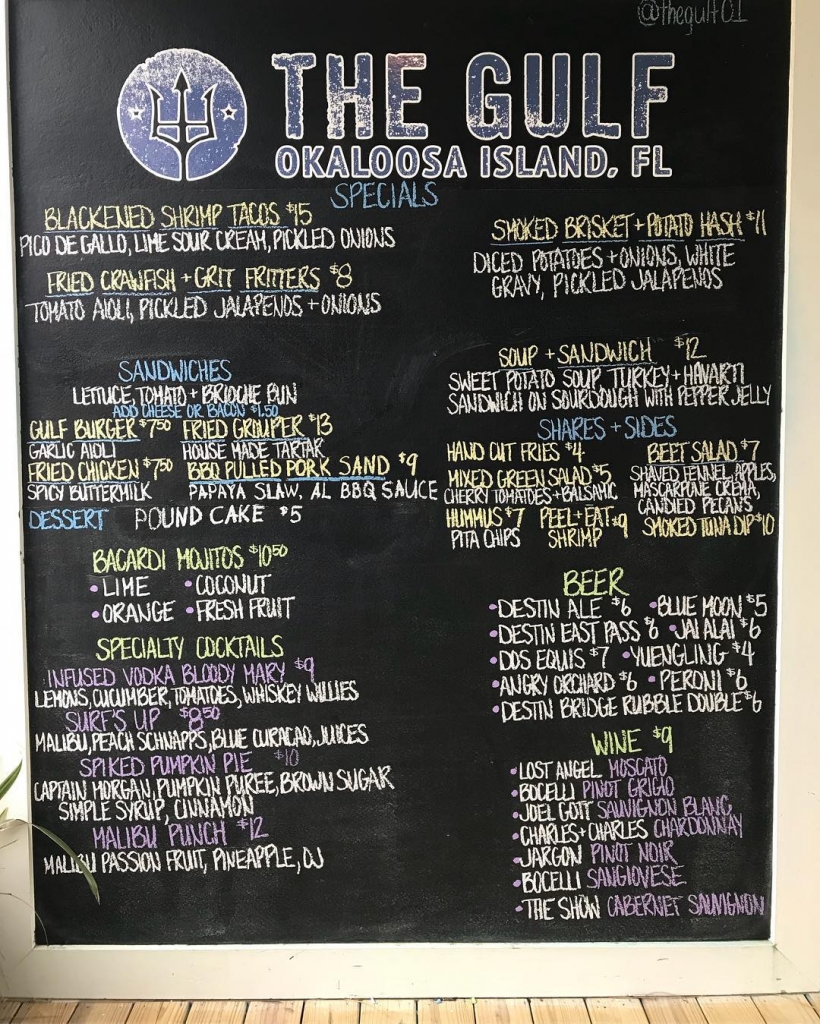 @thegulf01
THE GULF
OKALOOSA ISLAND, FL
SPECIALS
BLACKENED SHRIMP TACOS $15
PICO DE GALLO, LIME SOUR CREAM, PICKLED ONIONS
FRIED CRAWFISH + GRIT FRITTERS $8
TOMATO AIOLI, PICKLED JALAPENOS + ONIONS
SMOKED BRISKET + POTATO HASH $11
DICED POTATOES + ONIONS, WHITE
GRAVY, PICKLED JALAPENOS
SOUP + SANDWICH $12
SWEET POTATO SOUP, TURKEY + HAVARTI
SANDWICH ON SOURDOUGH WITH PEPPER JELLY
SANDWICHES
LETTUCE, TOMATO + BRIOCHE BUN
ADD CHEESE OR BACON $1.50
GULF BURGER $7.50 FRIED GROUPER $13
GARLIC AIOLI HOUSE MADE TARTAR
FRIED CHICKEN $7.50 BBQ PULLED PORK SAND $9
SPICY BUTTERMILK PAPAYA SLAW, AL BBQ SAUCE
DESSERT POUND CAKE $5
SHARES + SIDES
HAND CUT FRIES $4
MIXED GREEN SALAD $5
CHERRY TOMATOES + BALSAMIC
HUMMUS $7 PEEL + EAT $9
PITA CHIPS SHRIMP
BEET SALAD $7
SHAVED FENNEL, APPLES,
MASCARPONE CREMA,
CANDIED PECANS
SMOKED TUNA DIP $10
BACARDI MOJITOS $10.50
• LIME • COCONUT
• ORANGE • FRESH FRUIT
SPECIALTY COCKTAILS
INFUSED VODKA BLOODY MARY $9
LEMONS, CUCUMBER, TOMATOES, WHISKEY WILLIES
SURF'S UP $8.50
MALIBU, PEACH SCHNAPPS, BLUE CURACAO, JUICES
SPIKED PUMPKIN PIE $10
CAPTAIN MORGAN, PUMPKIN PUREE, BROWN SUGAR
SIMPLE SYRUP, CINNAMON
MALIBU PUNCH $12
MALIBU PASSION FRUIT, PINEAPPLE, OJ
BEER
• DESTIN ALE $6 • BLUE MOON $5
• DESTIN EAST PASS $6 • JAI ALAI $6
• DOS EQUIS $7 • YUENGLING $4
• ANGRY ORCHARD $6 • PERONI $6
• DESTIN BRIDGE RUBBLE DOUBLE $6
WINE $9
• LOST ANGEL MOSCATO
• BOCELLI PINOT GRIGIO
• JOEL GOTT SAUVIGNON BLANC
• CHARLES + CHARLES CHARDONNAY
• JARGON PINOT NOIR
• BOCELLI SANGIOVESE
• THE SHOW CABERNET SAUVIGNON